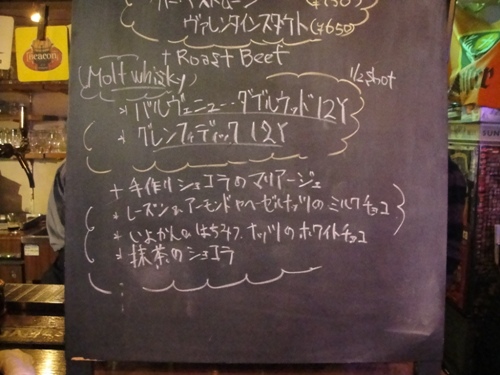 ヴァレンタインスタウト(¥650)
+ Roast Beef
Molt whisky
1/2 shot
* バルヴェニュー・ダブルウッド 12Y
* グレンフィディック 12Y
+ 手作りショコラのマリアージュ
* レーズン&アーモンドやヘーゼルナッツのミルクチョコ
* いよかんのはちみつ、ナッツのホワイトチョコ
* 抹茶のショコラ